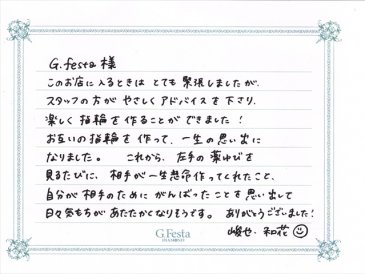 G.festa 様
このお店に入るときは とても緊張しましたが、
スタッフの方が やさしくアドバイスを下さり、
楽しく指輪を作ることができました！
お互いの指輪を作って、一生の思い出に
なりました。 これから、左手の薬ゆびを
見るたびに、相手が一生懸命作ってくれたこと、
自分が相手のために がんばったことを思い出して
日々気もちが あたたかくなりそうです。 ありがとうございました！
峻也、和花
G.Festa
DIAMOND